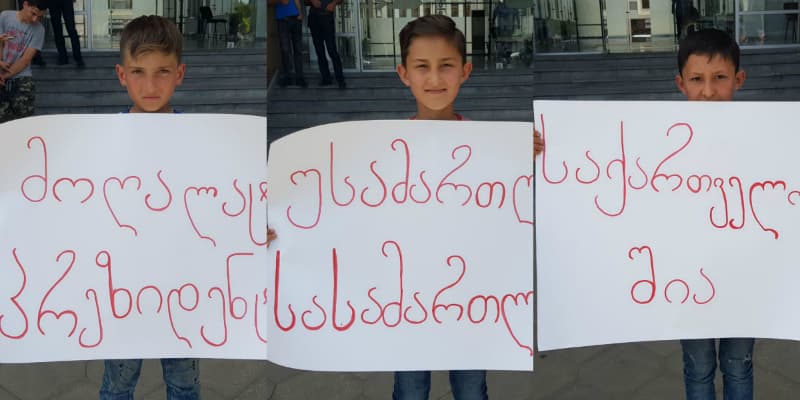 მოღალატ
პრეზიდენტ
უსამართლ
სასამართლ
საქართველო
შია